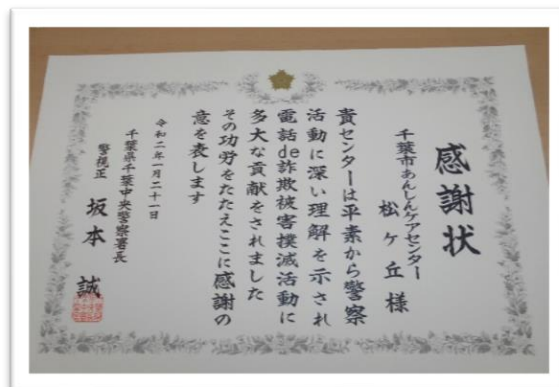 感謝状
千葉市あんしんケアセンター
松ヶ丘 様
貴センターは平素から警察
活動に深い理解を示され
電話de詐欺被害撲滅活動に
多大な貢献をされました
その功労をたたえここに感謝の
意を表します
令和二年一月二十一日
千葉県千葉中央警察署長
警視正 坂本 誠